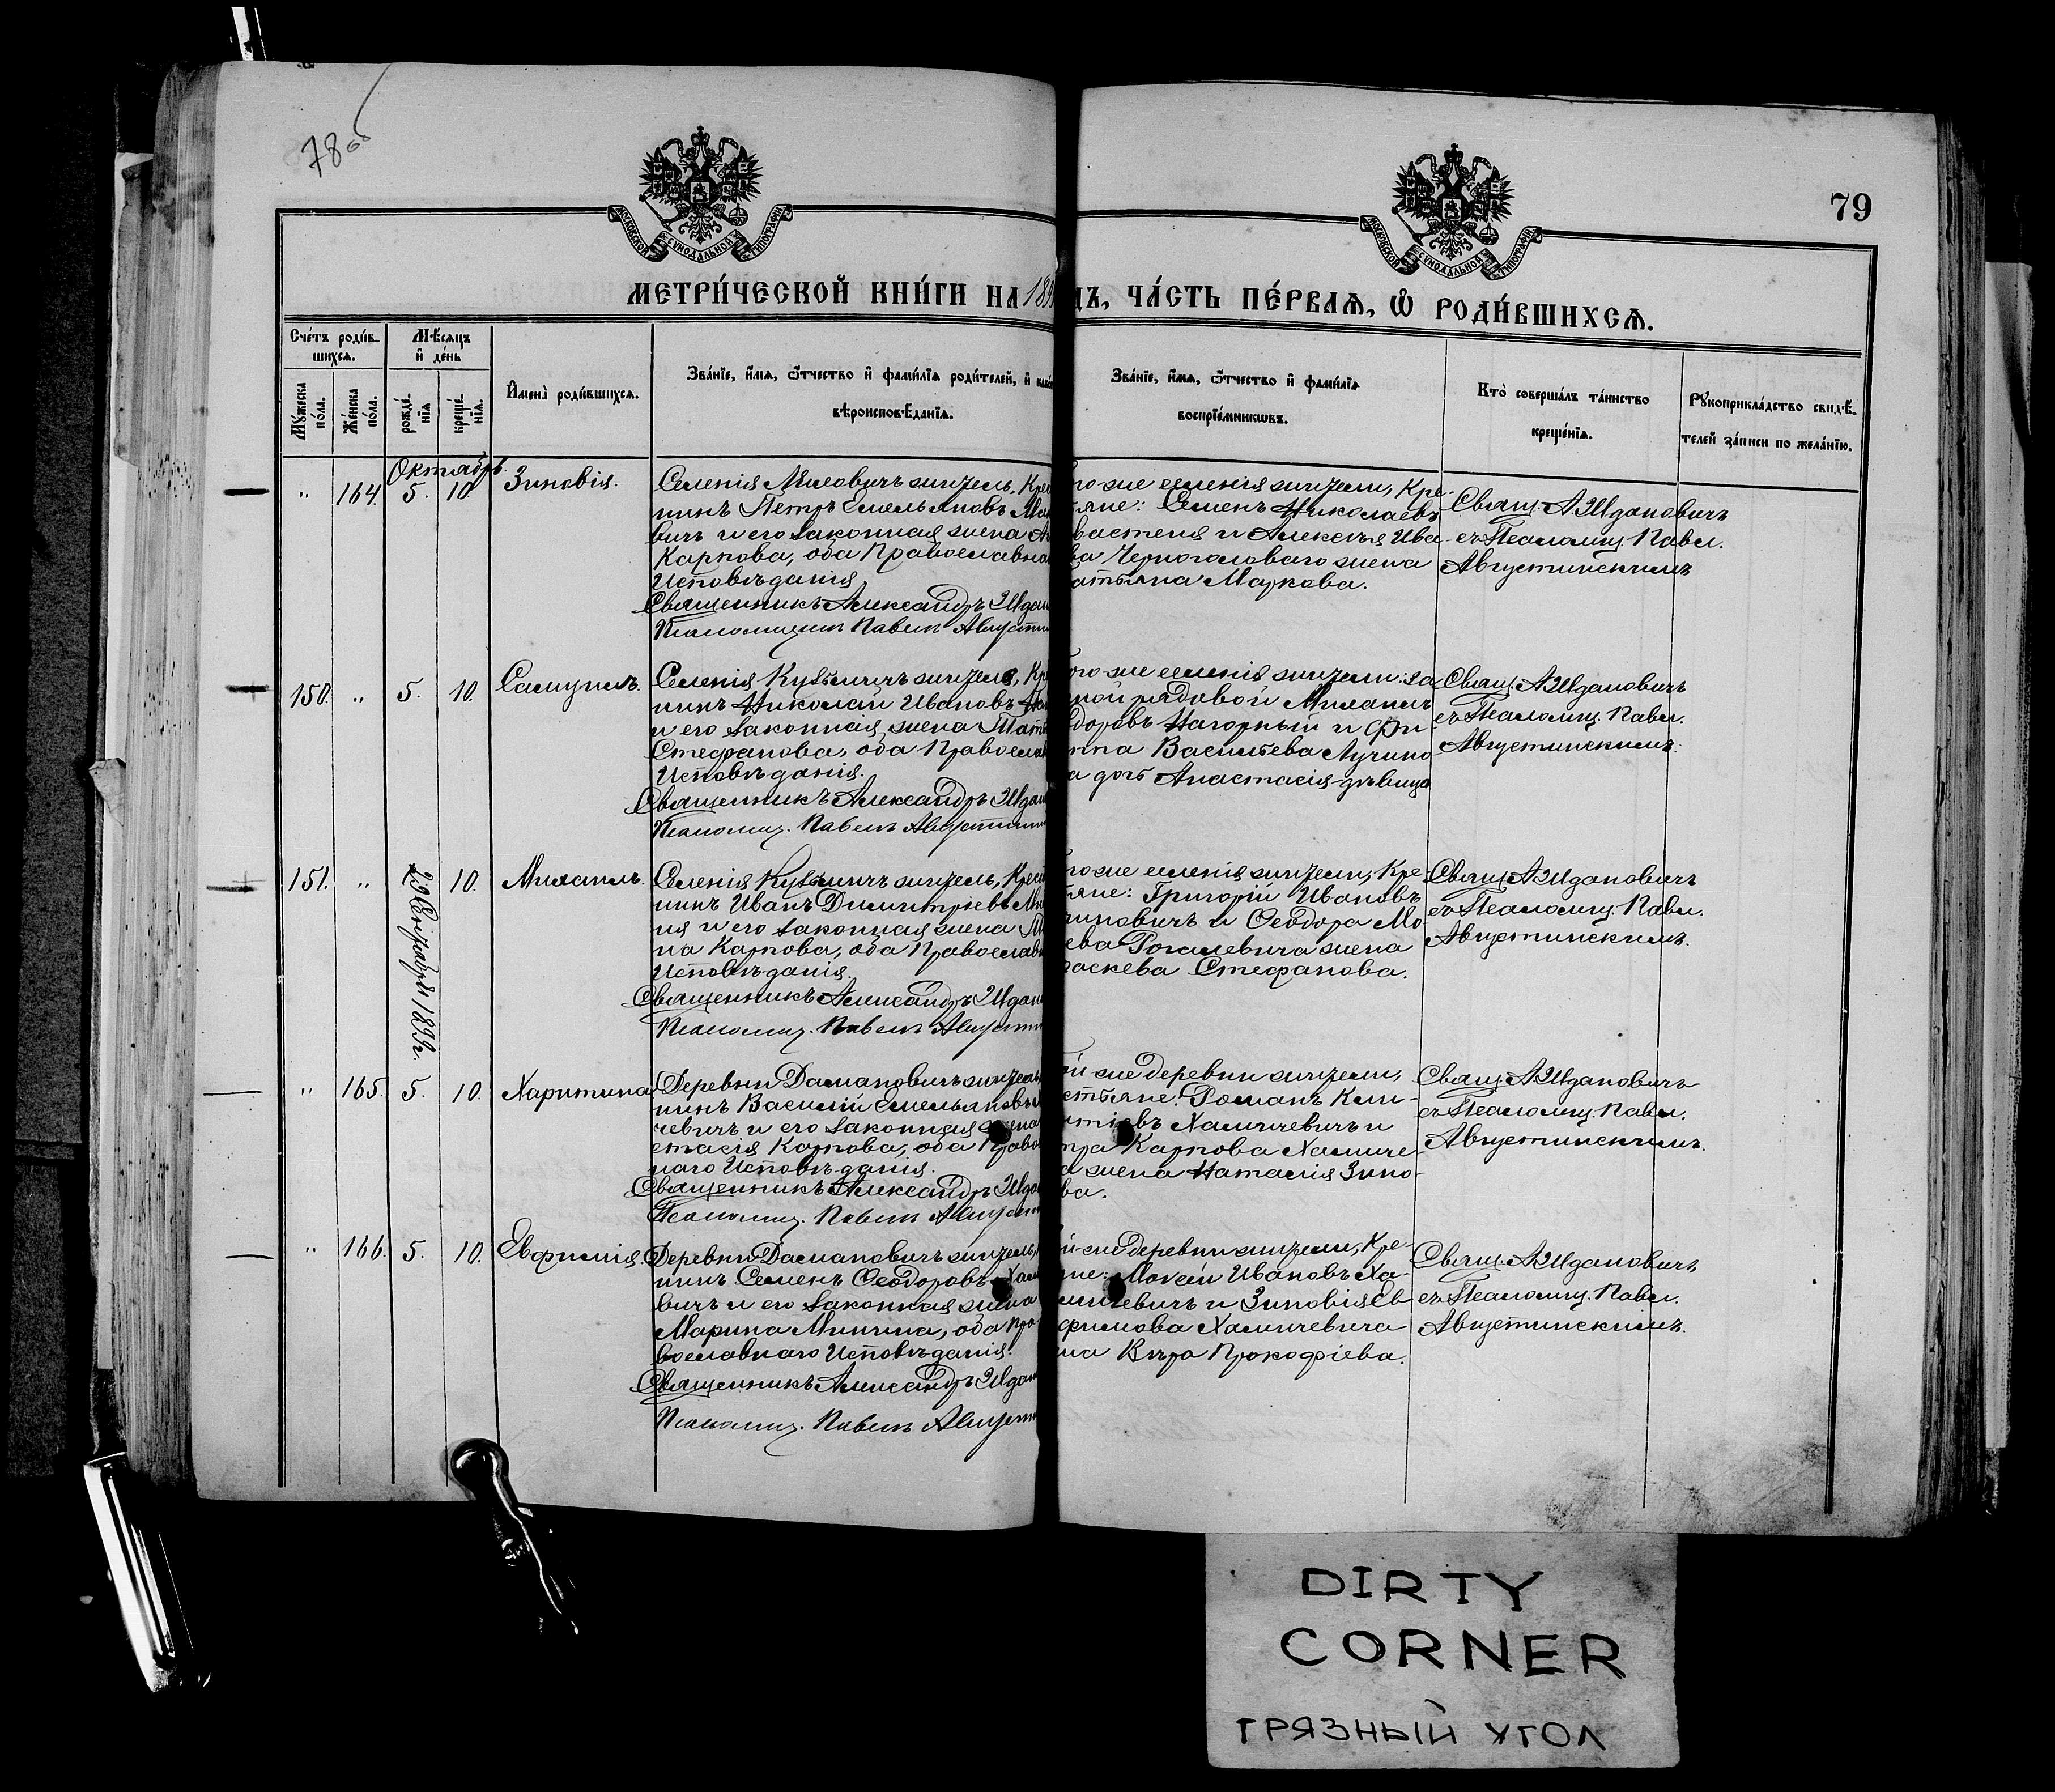 78 об
79
МОСКОВСКОЙ СѴНОДАЛЬНОЙ ТИПОГРАФІИ
МОСКОВСКОЙ СѴНОДАЛЬНОЙ ТИПОГРАФІИ
МЕТРИ́ЧЕСКОЙ КНИ́ГИ НА 189
ДЪ, ЧА́СТЬ ПЕ́РВАѦ, Ѽ РОДИ́ВШИХСѦ.
Сче́тъ роди́в-
шихсѧ.
Мꙋ́жеска по́ла.
Же́нска по́ла.
Мѣ́сѧцъ
и҆ де́нь
рожде́-
нїѧ
креще́-
нїѧ.
И҆мена̀ роди́вшихсѧ.
Зва́нїе, и҆́мѧ, ѻ҆́тчество и҆ фами́лїѧ роди́телей, и҆
вѣроисповѣ́данїѧ.
Зва́нїе, и҆́мѧ, ѻ҆́тчество и҆ фами́лїѧ
воспрїе́мникѡвъ.
Кто̀ соверша́лъ та́инство
креще́нїѧ.
Рꙋкоприкла́дство свидѣ́-
телей за́писи по жела́нїю.
Октябрь.
" 164. 5. 10. Зиновія.
Селенія Миловичъ житель, Крес
нинъ Петръ Емельяновъ
вичъ и его законная жена
Карпова, оба Православна
Исповѣданія
Священникъ Александръ Ждан
Псаломщикъ Павелъ Августи
го же селенія жители, Кре-
тяне: Семенъ Николаевъ
и Алексѣя Ива-
ва Черноголоваго жена
атьяна Маркова.
Свящ. А Ждановичъ
съ Псаломщ. Павл.
Августинскимъ
150. " 5. 10. Самуилъ.
Селенія Кузьмичъ житель, Кр
нинъ Николай Ивановъ
и его законная жена Тать
Стефанова, оба Правосла
Исповѣданія.
Священникъ Александръ Ждан
Псаломщ. Павелъ Августин
ого же селенія жители: за-
ной рядовой
доровъ Нагорный и Фи
ппа Васильева Лучино
а дочь Анастасія-дѣвица
Свящ. А Ждановичъ
съ Псаломщ. Павл.
Августинскимъ.
151. " 29 Сентября 1899 г. 10. Михаилъ.
Селенія Кузьмичъ житель, Крест
нинъ Иванъ Димитріевъ
ня и его законная жена
на Карпова, оба Православ
Исповѣданія.
Священникъ Александръ Ждан
Псаломщ. Павелъ Августи
го же селенія жители, Кре-
тяне: Григорій Ивановъ
иновичъ и Ѳеодора Мо
ева Рогалевича жена
раскева Стефанова.
Свящ. А Ждановичъ
съ Псаломщ. Павл.
Августинскимъ.
" 165. 5. 10. Харитина
Деревни Дамановичъ житель
нинъ Василій Емельяновъ
чевичъ и его законная жена
стасія Карпова, оба Право
наго Исповѣданія.
Священникъ Александръ Жда
Псаломщ. Павелъ Августи
ой же деревни жители,
стьяне: Романъ Кли-
нтіевъ Халичевичъ и
тра Карпова Халиче-
а жена Наталія Зино-
ва.
Свящ. А Ждановичъ
съ Псаломщ. Павл.
Августинскимъ.
" 166. 5. 10. Евфимія.
Деревни Дамановичъ житель,
нинъ Семенъ Ѳеодоровъ Хали
вичъ и его законная жена
Марина Минина, оба Пра
вославнаго Исповѣданія.
Священникъ Александръ Ждан
Псаломщ. Павелъ Августи
й-же деревни жители, Кре-
яне: Моисей Ивановъ Ха-
личевичъ и Зиновія Ев-
фимова Халичевича
на Вѣра Прокофіева.
Свящ. А Ждановичъ
съ Псаломщ. Павл.
Августинскимъ.
DIRTY
CORNER
ГРЯЗНЫЙ УГОЛ